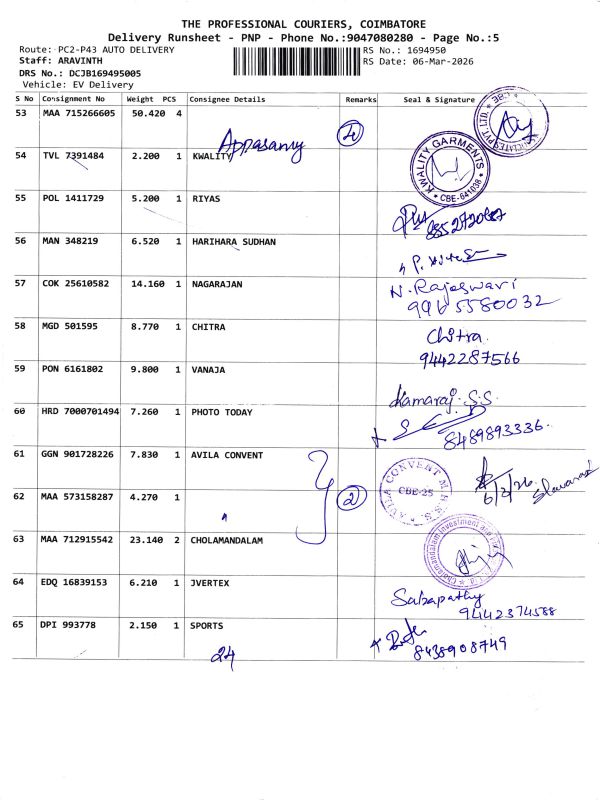 THE PROFESSIONAL COURIERS, COIMBATORE
Delivery Runsheet - PNP - Phone No.:9047080280 - Page No.:5
Route: PC2-P43 AUTO DELIVERY
RS No.: 1694950
Staff: ARAVINTH
RS Date: 06-Mar-2026
DRS No.: DCJB169495005
Vehicle: EV Delivery
S No Consignment No Weight PCS Consignee Details Remarks Seal & Signature
53 MAA 715266605 50.420 4 Appasamy 4
54 TVL 7391484 2.200 1 KWALITY KWALITY GARMENTS * CBE-641038 *
55 POL 1411729 5.200 1 RIYAS
56 MAN 348219 6.520 1 HARIHARA SUDHAN
57 COK 25610582 14.160 1 NAGARAJAN N. Rajeswari
9965580032
58 MGD 501595 8.770 1 CHITRA Chitra
9442287566
59 PON 6161802 9.800 1 VANAJA Kamaraj. S.S.
60 HRD 7000701494 7.260 1 PHOTO TODAY 8489893336
61 GGN 901728226 7.830 1 AVILA CONVENT AVILA CONVENT M.H.S.S. CBE-25 6/3/26
62 MAA 573158287 4.270 1 2
63 MAA 712915542 23.140 2 CHOLAMANDALAM Cholamandalam Investment and
64 EDQ 16839153 6.210 1 JVERTEX Sabapathy
9442374588
65 DPI 993778 2.150 1 SPORTS 8438908749
24